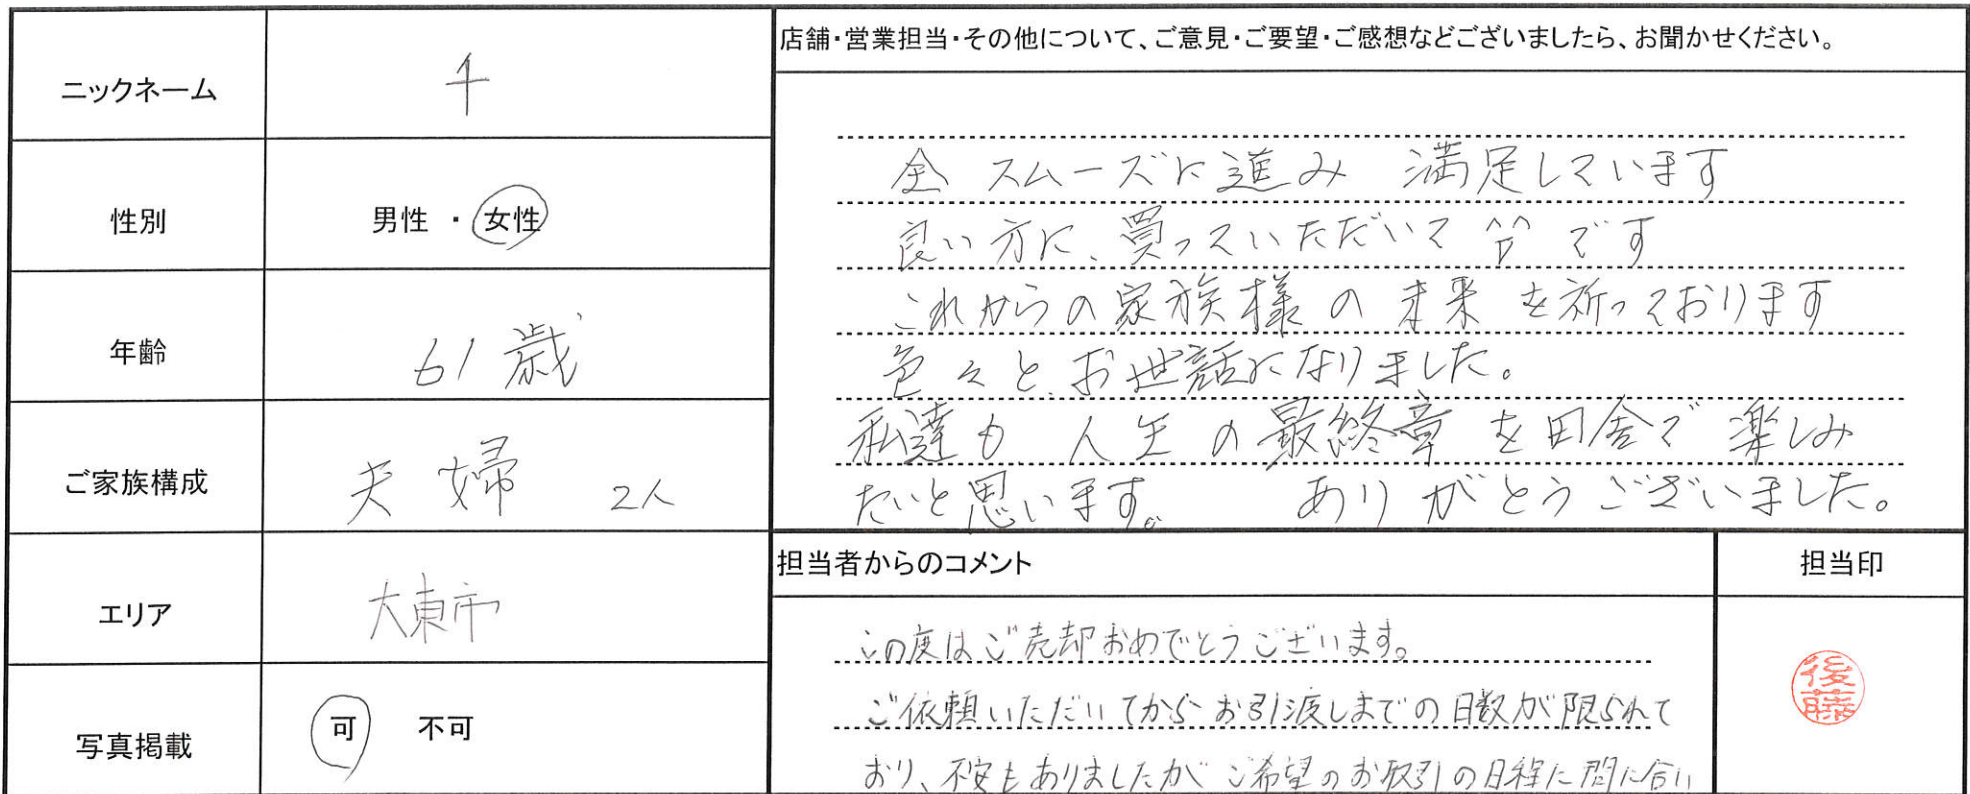 ニックネーム
千
性別
男性 ・ 女性
年齢
61歳
ご家族構成
夫婦 2人
エリア
大東市
写真掲載
可 不可
店舗・営業担当・その他について、ご意見・ご要望・ご感想などございましたら、お聞かせください。
全 スムーズに進み 満足しています
良い方に、買っていただいて ^^ です
これからの家族様の未来を祈っております
色々と、お世話になりました。
私達も 人生の最終章を田舎で楽しみ
たいと思います。 ありがとうございました。
担当者からのコメント
この度はご売却おめでとうございます。
ご依頼いただいてからお引渡しまでの日数が限られて
おり、不安もありましたがご希望のお取引の日程に間に合い
担当印
後藤